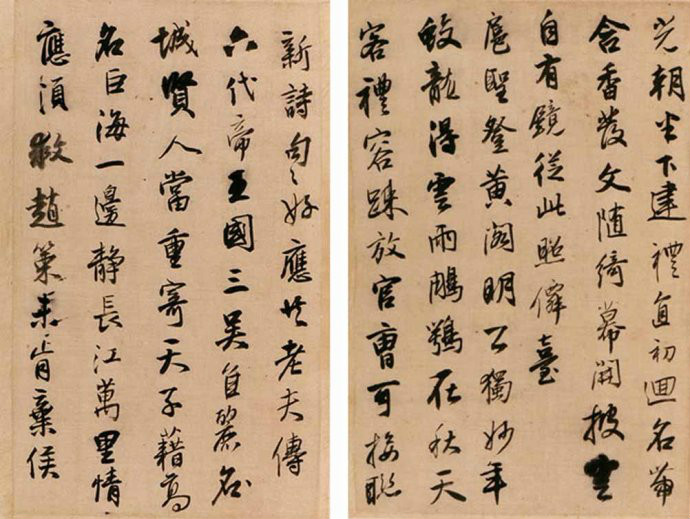 朝下建禮直初迴名
含香發文隨綺幕開披雲
自有鏡從此照僊臺
扈聖登黃閣明公獨妙年
蛟龍得雲雨鵰鶚在秋天
客禮容踈放官曹可接聯
新詩句〻好應共老夫傳
六代帝王國三吳自麗名
城賢人當重寄天子藉高
名巨海一邊靜長江萬里情
應須救趙策未肯棄侯